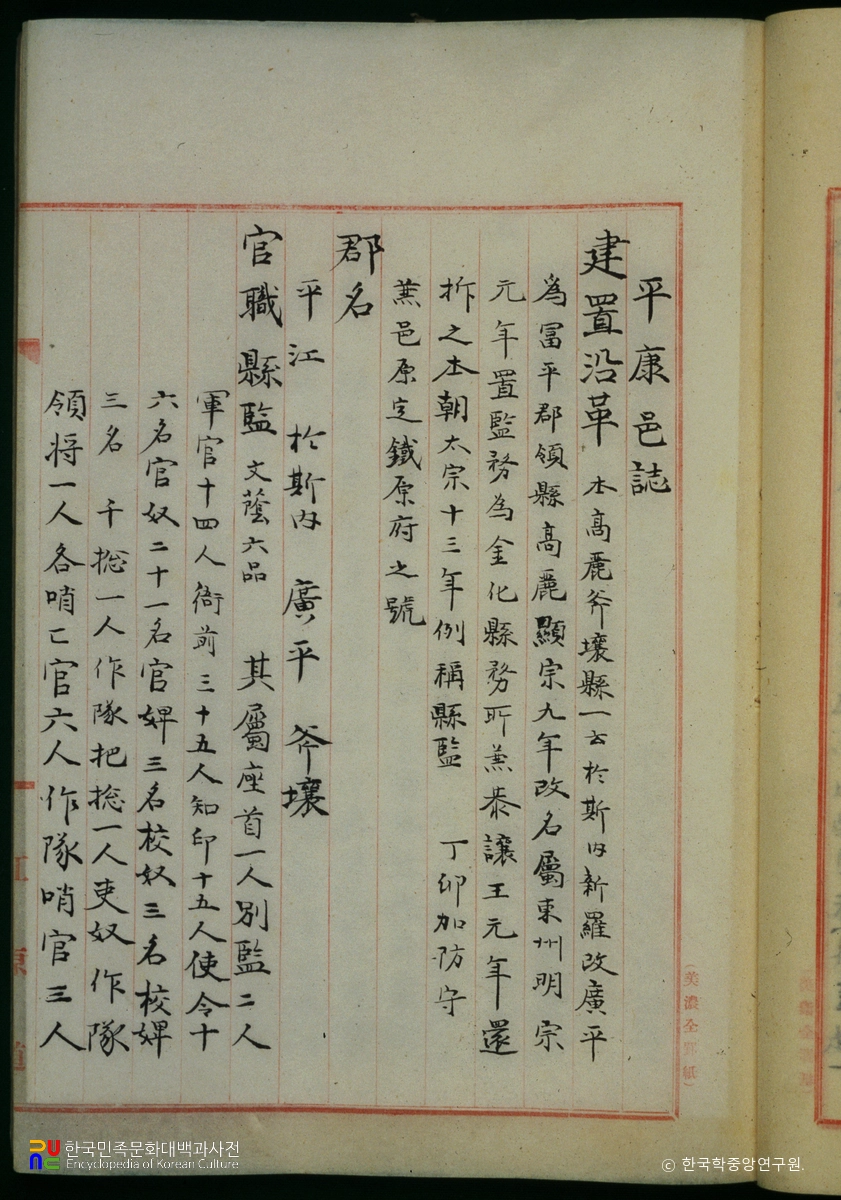 平康邑誌
建置沿革 本高麗斧壤縣一云於斯內新羅改廣平
爲冨平郡領縣高麗顯宗九年改名屬東州明宗
元年置監務為金化縣務所兼恭讓王元年還
拆之本朝太宗十三年例稱縣監 丁卯加防守
蕪邑原定鐵原府之號
郡名
平江 於斯內 廣平 斧壤
官職 縣監 文蔭六品 其屬座首一人別監二人
軍官十四人衙前三十五人知印十五人使令十
六名官奴二十一名官婢三名校奴三名校婢
三名 千摠一人作隊把摠一人吏奴作隊
領将一人各哨亡官六人作隊哨官三人
江
原
道
(美濃全罫紙)
한국민족문화대백과사전
Encyclopedia of Korean Culture
© 한국학중앙연구원.